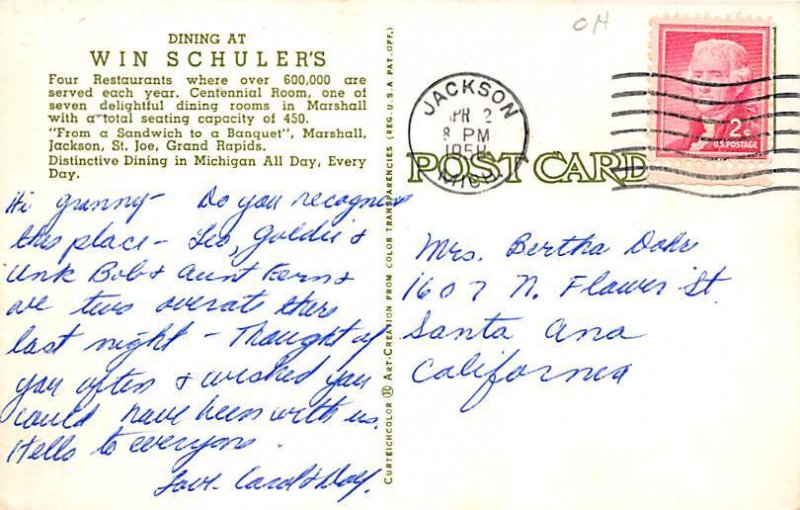 OH
DINING AT
WIN SCHULER'S
Four Restaurants where over 600,000 are
served each year. Centennial Room, one of
seven delightful dining rooms in Marshall
with a total seating capacity of 450.
"From a Sandwich to a Banquet", Marshall,
Jackson, St. Joe, Grand Rapids.
Distinctive Dining in Michigan All Day, Every
Day.
Hi granny - Do you recognize
this place - Leo, Goldie &
Unk Bob & Aunt Fern &
we two overate there
last night - Thought of
you often & wished you
could have been with us.
Hello to everyone
Love Carol & Dolf.
CURTEICHCOLOR ® ART-CREATION FROM COLOR TRANSPARENCIES (REG. U.S.A PAT. OFF.)
JACKSON
APR 2
8 PM
MICH.
2¢
U.S. POSTAGE
POST CARD
Mrs. Bertha
1607 N. Flower St
Santa Ana
California